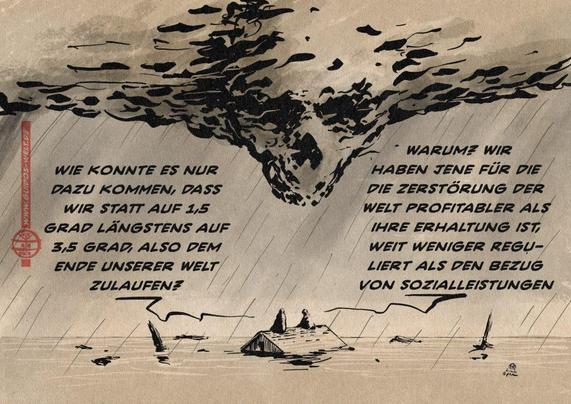 WIE KONNTE ES NUR
DAZU KOMMEN, DASS
WIR STATT AUF 1,5
GRAD LÄNGSTENS AUF
3,5 GRAD, ALSO DEM
ENDE UNSERER WELT
ZULAUFEN?
WARUM? WIR
HABEN JENE FÜR DIE
DIE ZERSTÖRUNG DER
WELT PROFITABLER ALS
IHRE ERHALTUNG IST,
WEIT WENIGER REGU-
LIERT ALS DEN BEZUG
VON SOZIALLEISTUNGEN
WWW.GUIDOS-WELT.DE